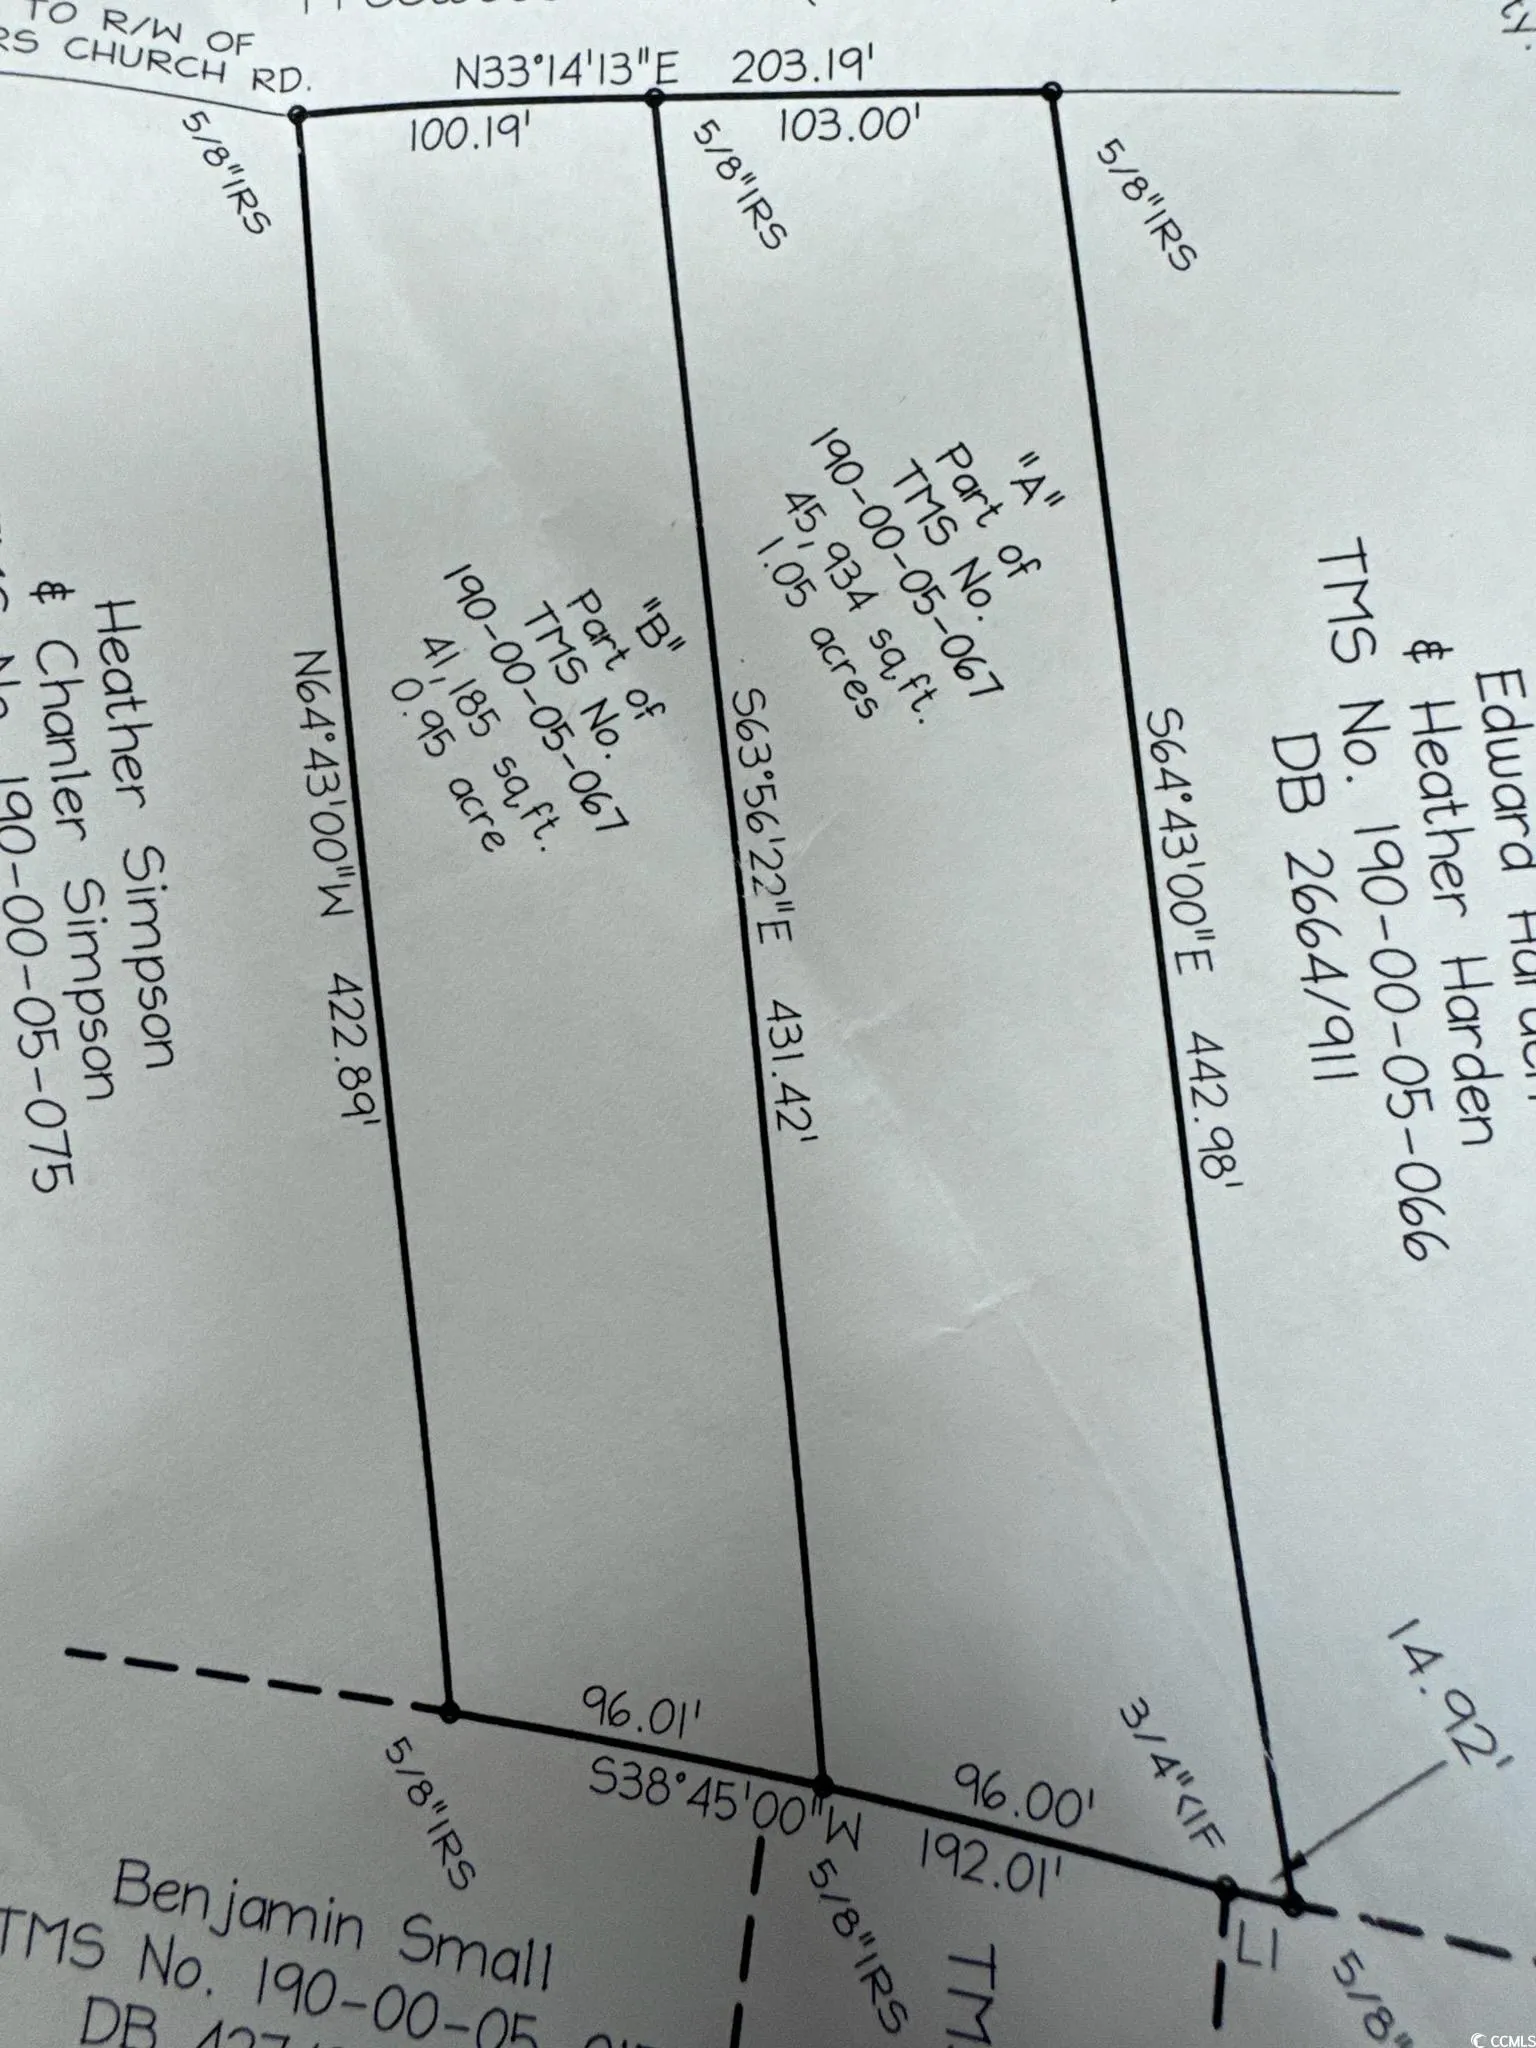 TO R/W OF
RS CHURCH RD.
N33°14'13"E 203.19'
100.19'
103.00'
5/8"IRS
5/8"IRS
5/8"IRS
"A"
Part of
TMS No.
190-00-05-067
45,934 sq.ft.
1.05 acres
"B"
Part of
TMS No.
190-00-05-067
41,185 sq.ft.
0.95 acre
N64°43'00"W 422.89'
S63°56'22"E 431.42'
S64°43'00"E 442.98'
Heather Simpson
& Chanler Simpson
No. 190-00-05-075
Edward
& Heather Harden
TMS No. 190-00-05-066
DB 2664/911
96.01'
S38°45'00"W
96.00'
192.01'
3/4"<IF
14.92'
L1
5/8"IRS
5/8"IRS
5/8"
Benjamin Small
TMS No. 190-00-05
DB
TM
CCMLS